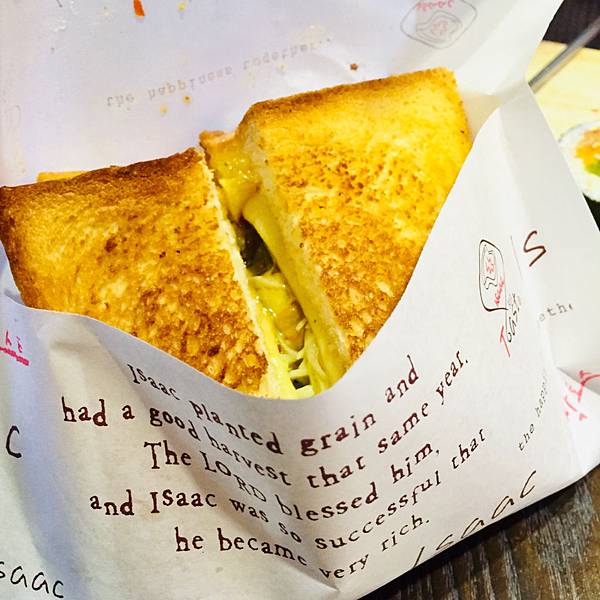 the happiness together.
Isaac planted grain and
had a good harvest that same year.
The LORD blessed him,
and Isaac was so successful that
he became very rich.
Toast
Isaac
the happ
eth.
saac